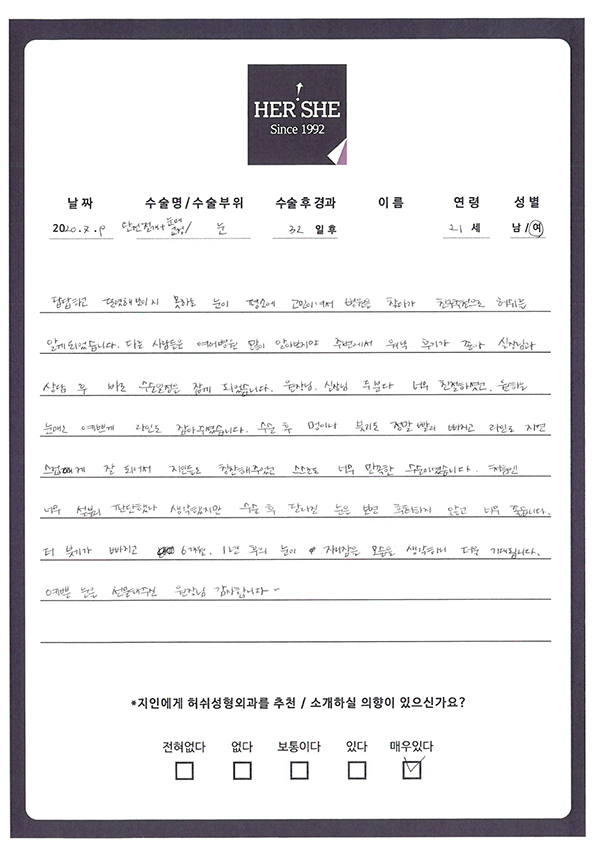 HER SHE
Since 1992
날 짜 수술명 / 수술부위 수술 후 경과 이 름 연 령 성 별
2020. 눈매교정 / 눈 32 일 후 21 세 남 / 여
답답하고 또렷해보이지 못하는 눈이 평소에 고민이어서 병원을 찾다가 허쉬를
알게되었습니다. 다른 사람들은 여러병원 많이 알아보지만 주변에서 워낙 후기가 좋아 실장님과
상담 후 바로 수술일정을 잡게 되었습니다. 원장님, 실장님 두분다 너무 친절하셨고, 원하는
눈매로 예쁘게 라인도 잡아주셨습니다. 수술 후 멍이나 붓기도 정말 빨리 빠지고 라인도 자연
스럽게 잘 되어서 지인들도 칭찬해주었고 스스로도 너무 만족한 수술이였습니다. 처음엔
너무 섣불리 판단했나 생각했지만 수술 후 달라진 눈을 보면 후회하지 않고 너무 좋습니다.
더 붓기가 빠지고 6개월, 1년 후의 눈이 자리잡은 모습을 생각하니 더욱 기대됩니다.
예쁜 눈을 선물해주신 원장님 감사합니다~
*지인에게 허쉬성형외과를 추천 / 소개하실 의향이 있으신가요?
전혀없다 없다 보통이다 있다 매우있다